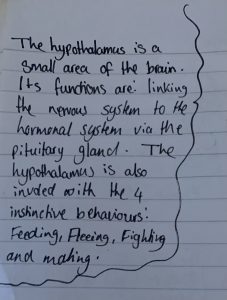 The hypothalamus is a
small area of the brain.
Its functions are: linking
the nervous system to the
hormonal system via the
pituitary gland. The
hypothalamus is also
involed with the 4
instinctive behaviours:
Feeding, Fleeing, Fighting
and mating.